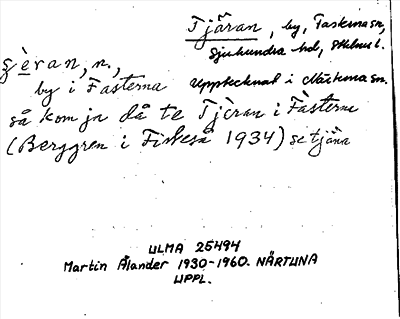 Tjäran, by, Fasterna sn,
Sjuhundra hd, Sthlms l.
Upptecknat i Närtuna sn.
gèran, n.,
by i Fasterna
så kom ja då te Tjèran i Fàsterne
(Berggren i Fiskeså 1934) se tjäna
ULMA 25494
Martin Ålander 1930-1960. NÄRTUNA
UPPL.